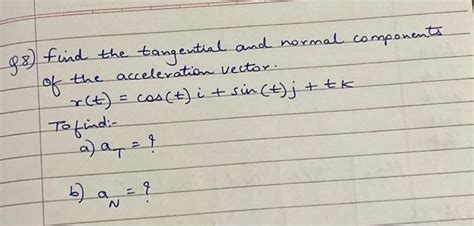 Q8) find the tangential and normal components
of the acceleration vector.
r(t) = cos(t) i + sin(t) j + t k
To find:-
a) a_T = ?
b) a_N = ?